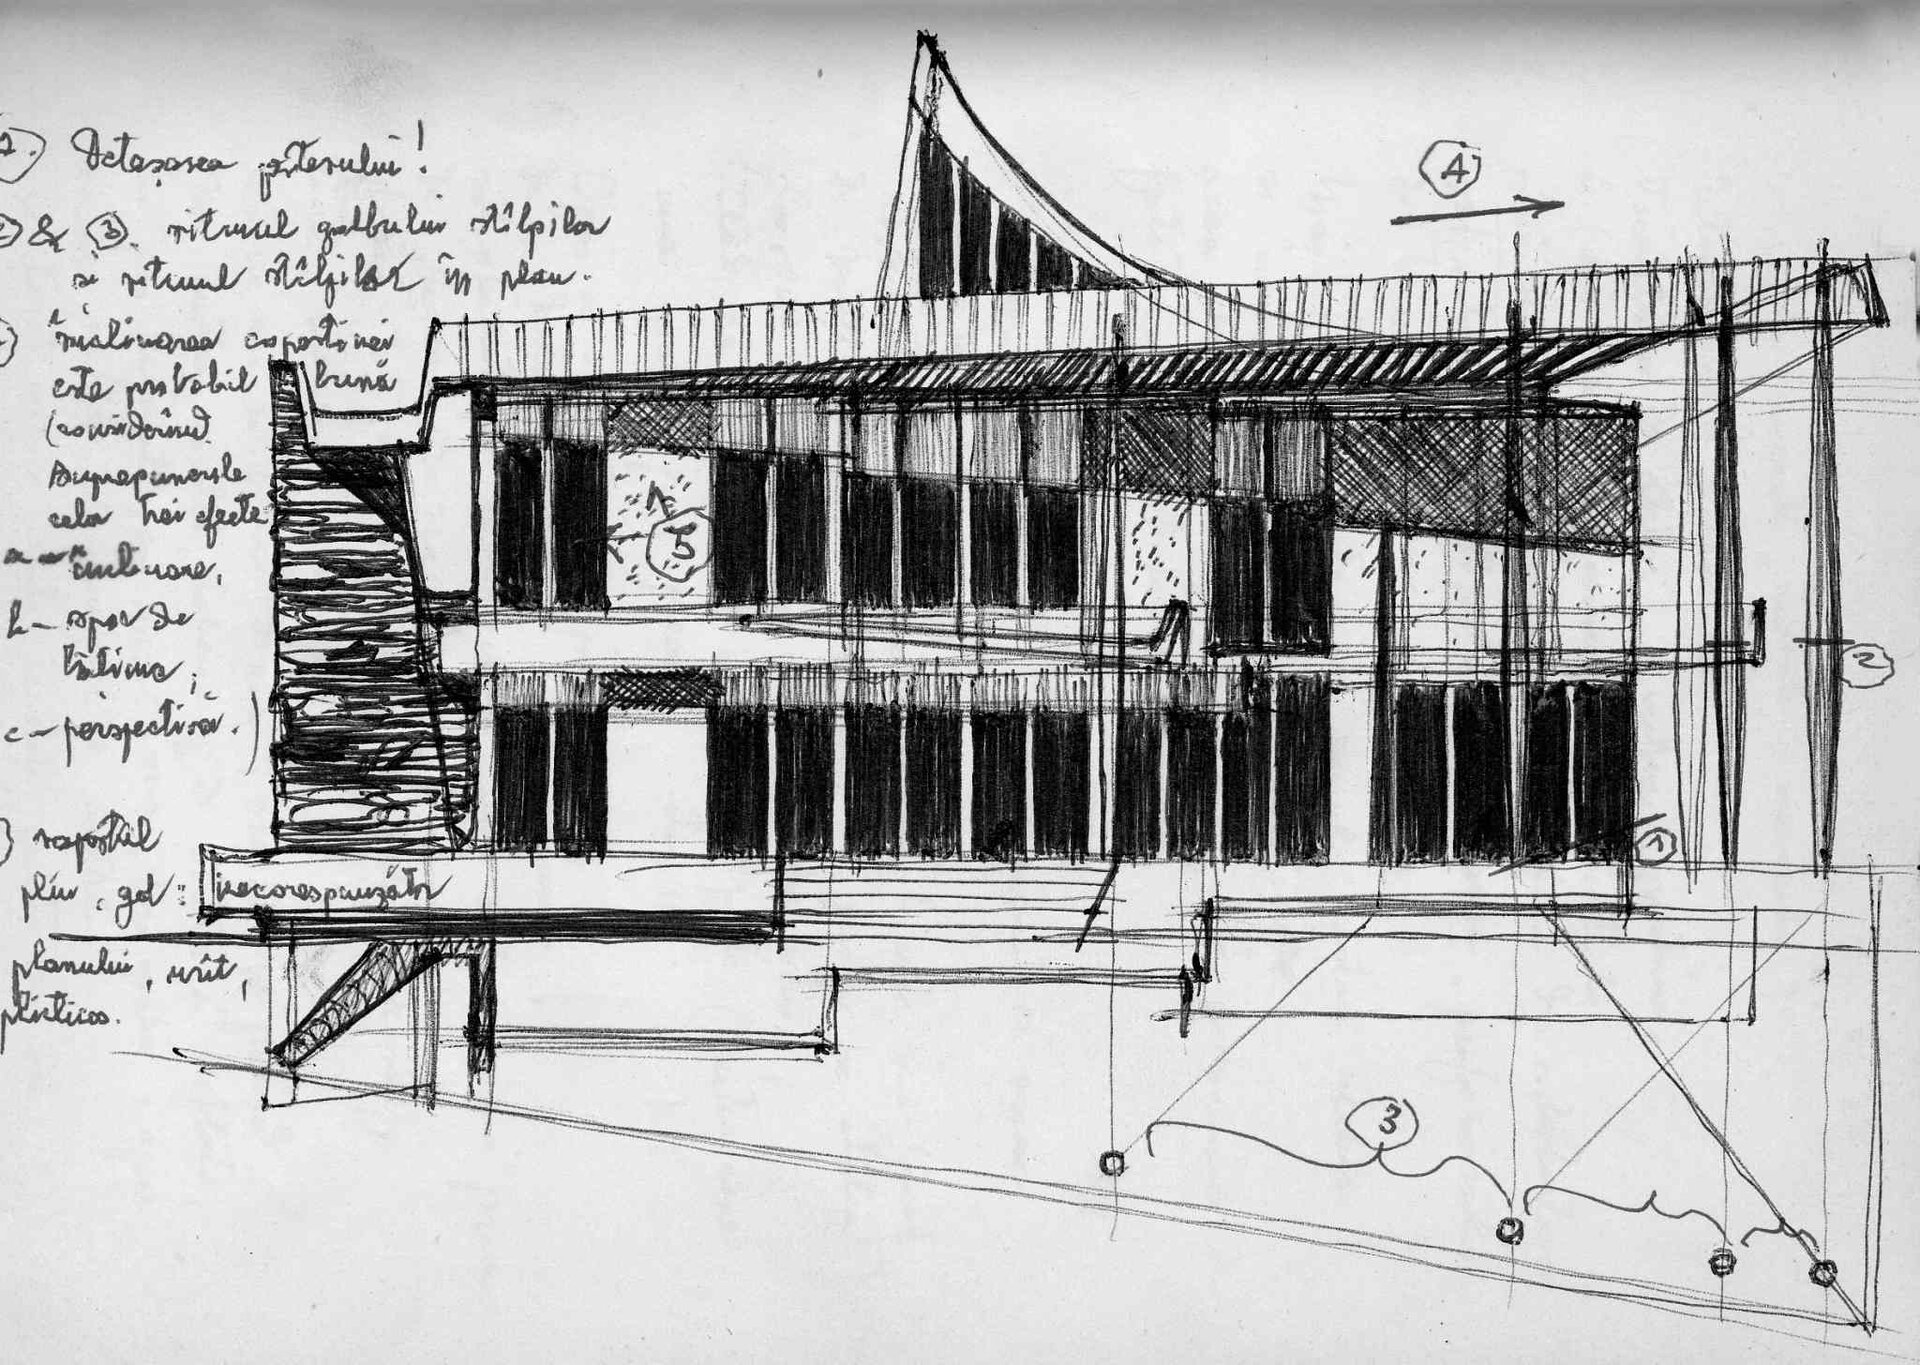 1. Detașarea parterului!
2 & 3. ritmul galbului stîlpilor
și ritmul stîlpilor în plan.
înclinarea copertinei
este probabil bună
(considerînd
suprapunerile
celor trei efecte
a - înclinare,
b - spor de
lățime;
c - perspectivă.)
raportul
plin, gol:
necorespunzător
planului, urît,
plicticos.
4
5
2
1
3